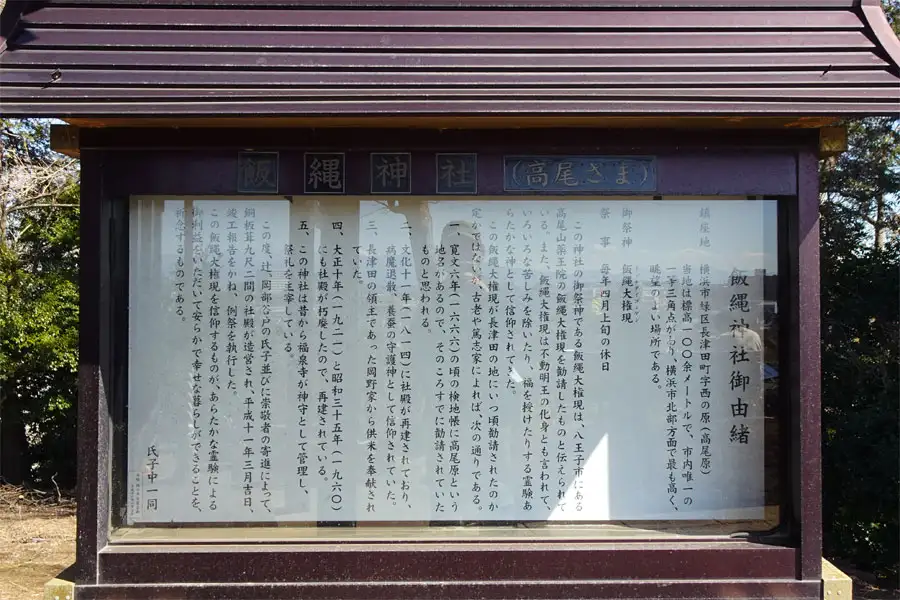 飯縄神社(高尾さま)
飯縄神社御由緒
鎮座地 横浜市緑区長津田町字西の原(高尾原)
当地は標高一〇〇余メートルで、市内唯一の
一等三角点があり、横浜市北部方面で最も高く、
眺望のよい場所である。
御祭神 飯縄大権現
祭事 毎年四月上旬の休日
この神社の御祭神である飯縄大権現は、八王子市にある
高尾山薬王院の飯縄大権現を勧請したものと伝えられて
いる。また、飯縄大権現は不動明王の化身とも言われて、
いろいろな苦しみを除いたり、福を授けたりする霊験あ
らたかな神として信仰されてきた。
この飯縄大権現が長津田の地にいつ頃勧請されたのか
定かではないが、古老や篤志家によれば、次の通りである。
一、寛文六年(一六六六)の頃の検地帳に高尾原という
地名があるので、そのころすでに勧請されていた
ものと思われる。
二、文化十一年(一八一四)に社殿が再建されており、
病魔退散、養蚕の守護神として信仰されていた。
三、長津田の領主であった岡野家から供米を奉献され
ていた。
四、大正十年(一九二一)と昭和三十五年(一九六〇)
にも社殿が朽廃したので、再建されている。
五、この神社は昔から福泉寺が神守として管理し、
祭礼を主宰している。
この度、辻、岡部谷戸の氏子並びに崇敬者の寄進によって、
銅板葺九尺二間の社殿が造営され、平成十一年三月吉日、
竣工報告をかね、例祭を執行した。
この飯縄大権現を信仰するものが、あらたかな霊験による
御利益をいただいて安らかで幸せな暮らしができることを、
祈念するものである。
氏子中一同